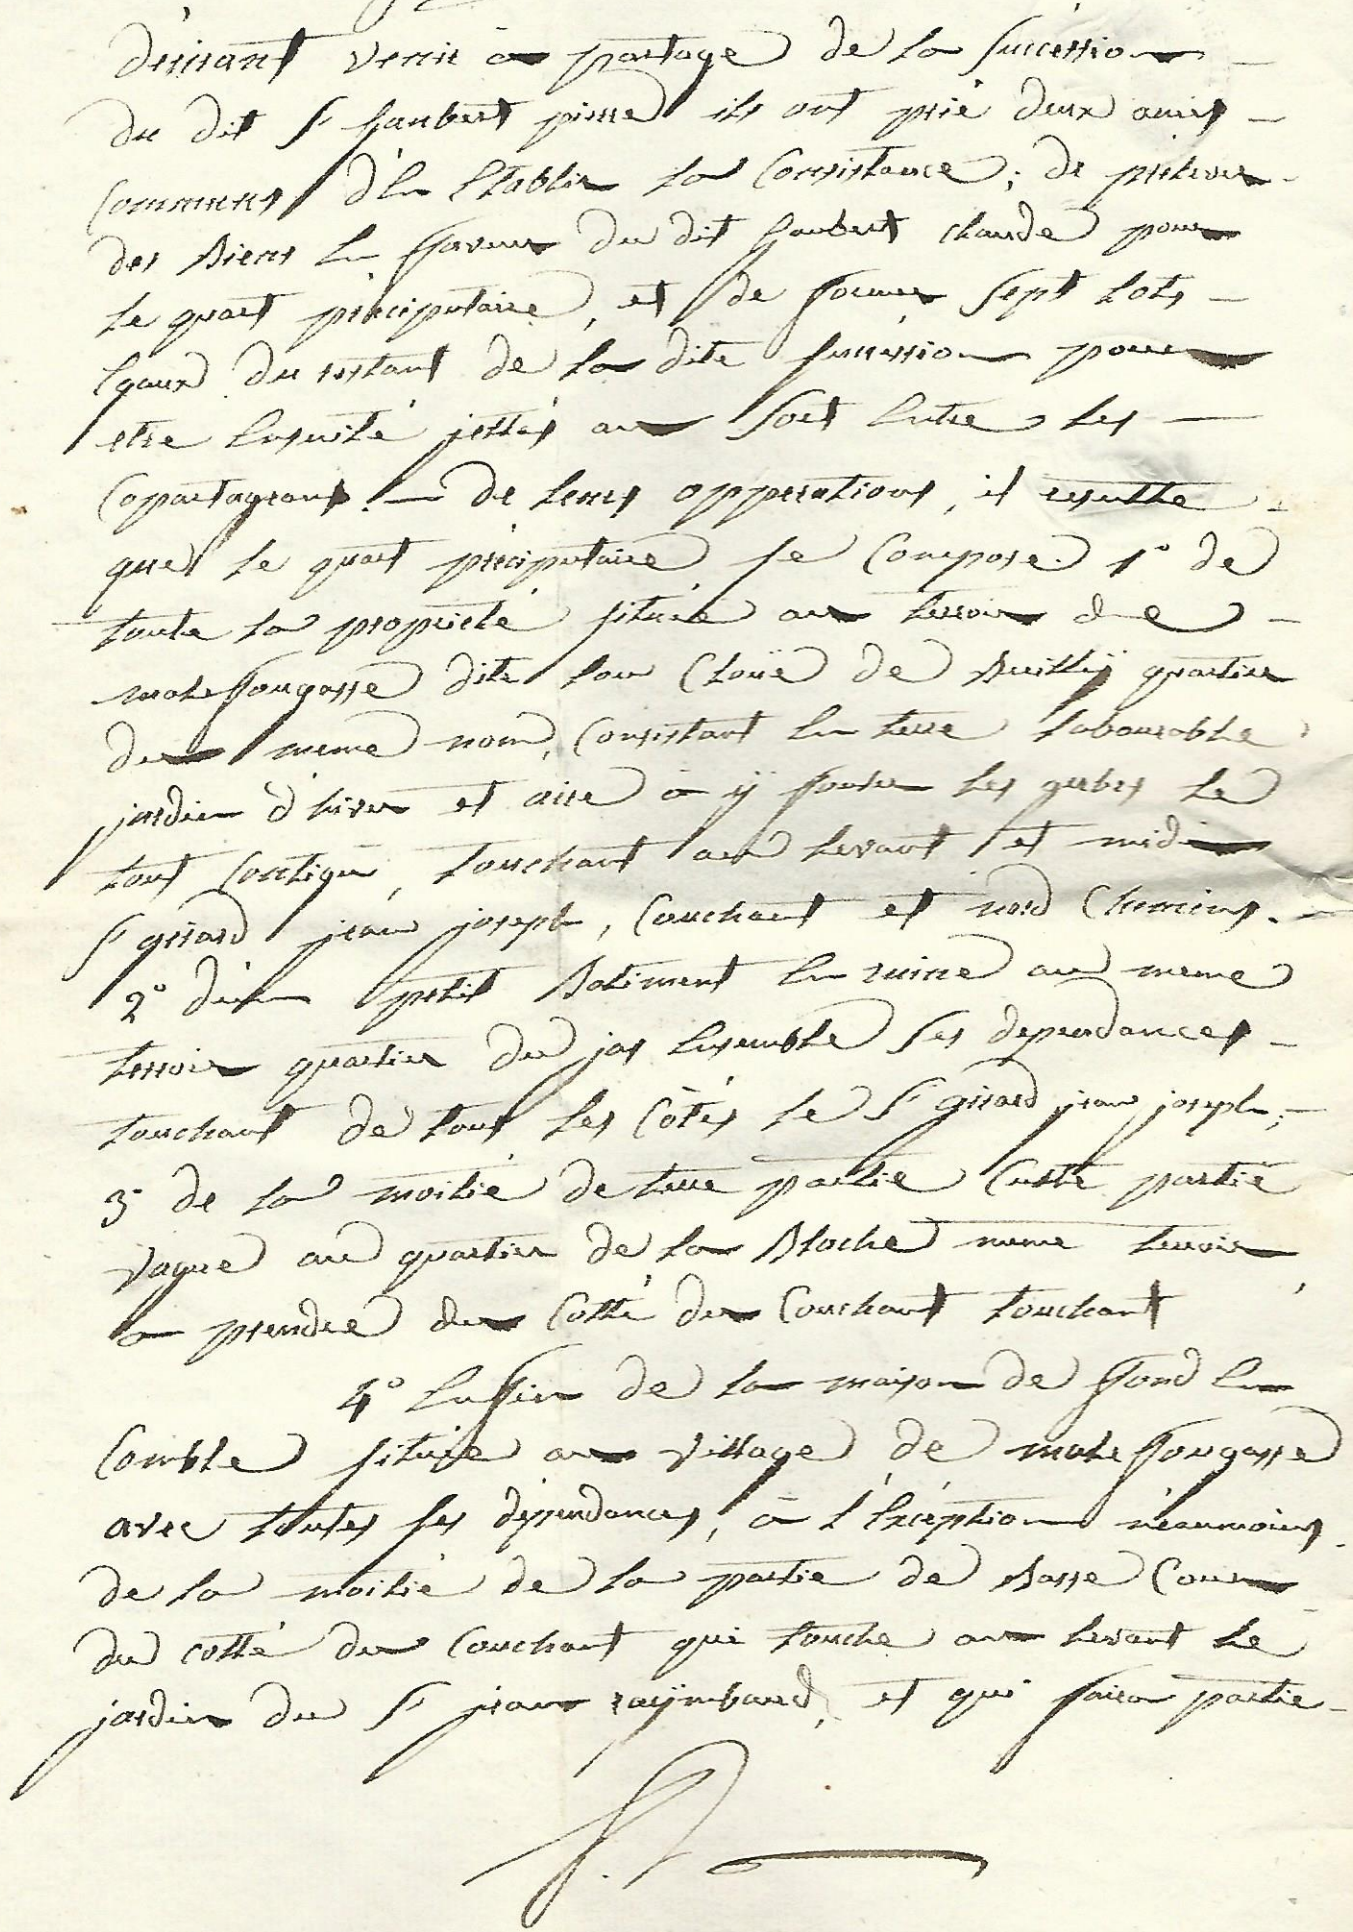 désirant venir à partage de la succession
du dit Sr Jaubert pierre ils ont prié deux amis
communs d'en Etablir la Consistance; de prélever
des Biens En faveur du dit Jaubert claude pour
le quart préciputaire, et de former sept lots
Egaux du restant de la dite succession pour
etre Ensuite jettés au sort Entre les
Copartageans. — de leurs opperations, il resulte
que le quart préciputaire se Compose 1° de
toute la propriété située au terroir de
malefougasse dite lou Clouë de quartier
du meme nom, Consistant En terre labourable
jardin d'hiver et aire à ÿ fouler les gerbes le
tout Contigu, touchant au levant et midi
Sr girard jean joseph, Couchant et nord Chemins.
2° d'un petit Batiment En ruine au meme
terroir quartier du jas Ensemble ses dependances
touchant de tout les Côtés le Sr girard jean joseph;
3° de la moitié de terre partie Culte partie
vague au quartier de la Blache meme terroir
a prendre du Cotté du Couchant touchant
4° Enfin de la maison de fond En
Comble située au village de malefougasse
avec toutes ses dépendances, à l'Exception néanmoins
de la moitié de la partie de Basse Cour
du cotté du Couchant qui touche au levant le
jardin du Sr jean raÿmbaud, et qui faira partie